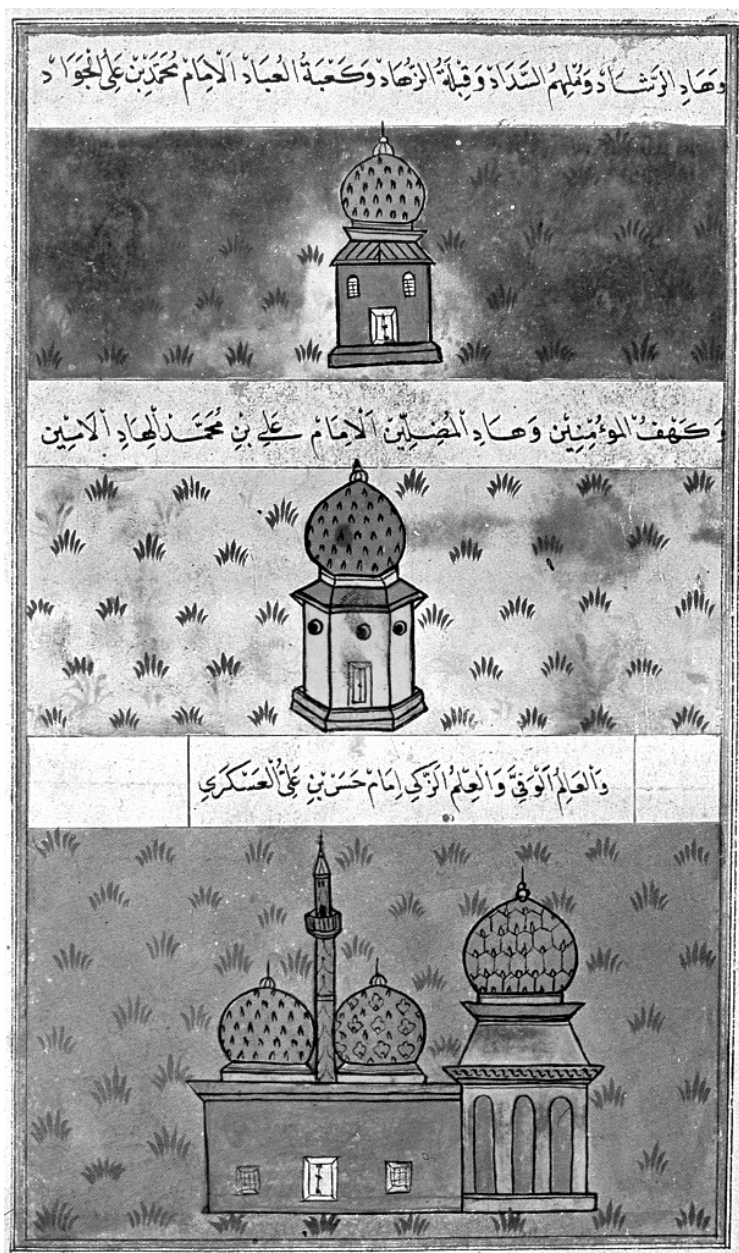 وَهَادِ الرَّشَادْ وَمُلْهِمُ السَّدَادْ وَقِبْلَةُ الزُّهَادْ وَكَعْبَةُ الْعُبَادْ اَلْاِمَامْ مُحَمَّدِبْنِ عَلِىُّ الْجَوَادْ
وَكَهْفُ الْمُوءْمِنِينْ وَهَادِ الْمُضِلِّينْ اَلْاِمَامْ عَلِى بْنِ مُحَمَّدْ اَلْهَادِ الْاَمِينْ
وَالْعَالِمُ الْوَفِىَّ وَالْعِلْمُ الزَّكِىِ اِمَامْ حَسَنْ بْنِ عَلِىُّ الْعَسْكَرِي